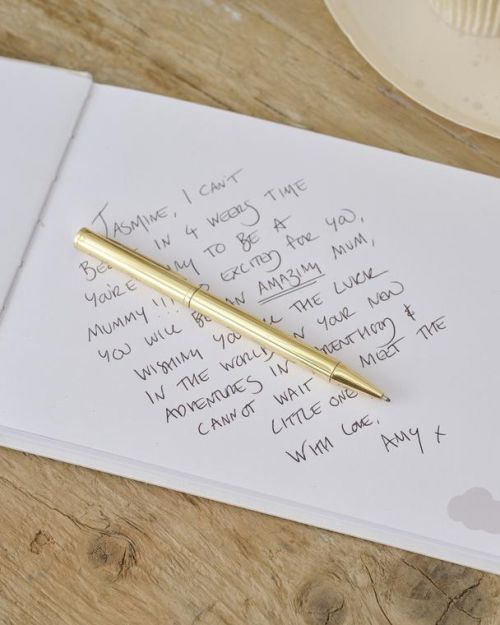 JASMINE, I CAN'T
IN 4 WEEKS TIME
YOU'RE TO BE A
MUMMY !!! EXCITED FOR YOU,
YOU WILL BE AN AMAZING MUM,
WISHING THE LUCK
IN THE WORLD IN YOUR NEW
ADVENTURES IN &
CANNOT WAIT MEET THE
LITTLE ONE
WITH LOVE,
AMY X